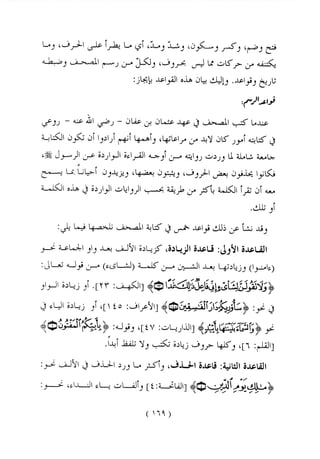 فتح وضم، وكسر وسكون، وشد ومد، أي ما يطرأ على الحروف، وما
يكتنفه من حركات مما ليس بحروف، ولكل من رسم المصحف وضبطه
تاريخ وقواعد. وإليك بيان هذه القواعد بإيجاز:
قواعد الرسم:
عندما كتب المصحف في عهد عثمان بن عفان - رضي الله عنه - روعي
في كتابته أمور كان لا بد من مراعاتها، وأهمها أنهم أرادوا أن تكون الكتابة
حاملة شاملة لما ورد روايته من أوجه القراءة الواردة عن الرسول ﷺ،
فكانوا يحذفون بعض الحروف، ويثبتون بعضها، ويزيدون أحياناً ما يسمح
أن تقرأ الكلمة بأكثر من طريقة بحسب الروايات الواردة في هذه الكلمة
أو تلك.
وقد نشأ عن ذلك خمس قواعد في كتابة المصحف نلخصها فيما يلي:
القاعدة الأولى: قاعدة الزيادة، كزيادة الألف بعد واو الجماعة نحو
(ءامنوا) وزيادتها بعد الشين من كلمة (لشاىء) من قوله تعالى:
﴿وَلَا تَقُولَنَّ لِشَا۟ىْءٍ إِنِّى فَاعِلٌ ذَٰلِكَ غَدًا ٢٣﴾ [الكهف: ٢٣]. أو زيادة الواو
في نحو: ﴿سَأُو۟رِيكُمْ دَارَ ٱلْفَٰسِقِينَ ١٤٥﴾ [الأعراف: ١٤٥]، أو زيادة الياء في
نحو ﴿وَٱلسَّمَآءَ بَنَيْنَٰهَا بِأَيْي۟دٍ﴾ [الذاريات: ٤٧]، وقوله: ﴿بِأَييِّكُمُ ٱلْمَفْتُونُ ٦﴾
[القلم: ٦]، وهكذا حروف زيادة تكتب ولا تلفظ أبداً.
القاعدة الثانية: قاعدة الحذف، وأكثر ما ورد الحذف في الألف نحو:
﴿مَٰلِكِ يَوْمِ ٱلدِّينِ ٤﴾ [الفاتحة: ٤] وألفات ياء النداء، نحو:
( ١٦٩ )